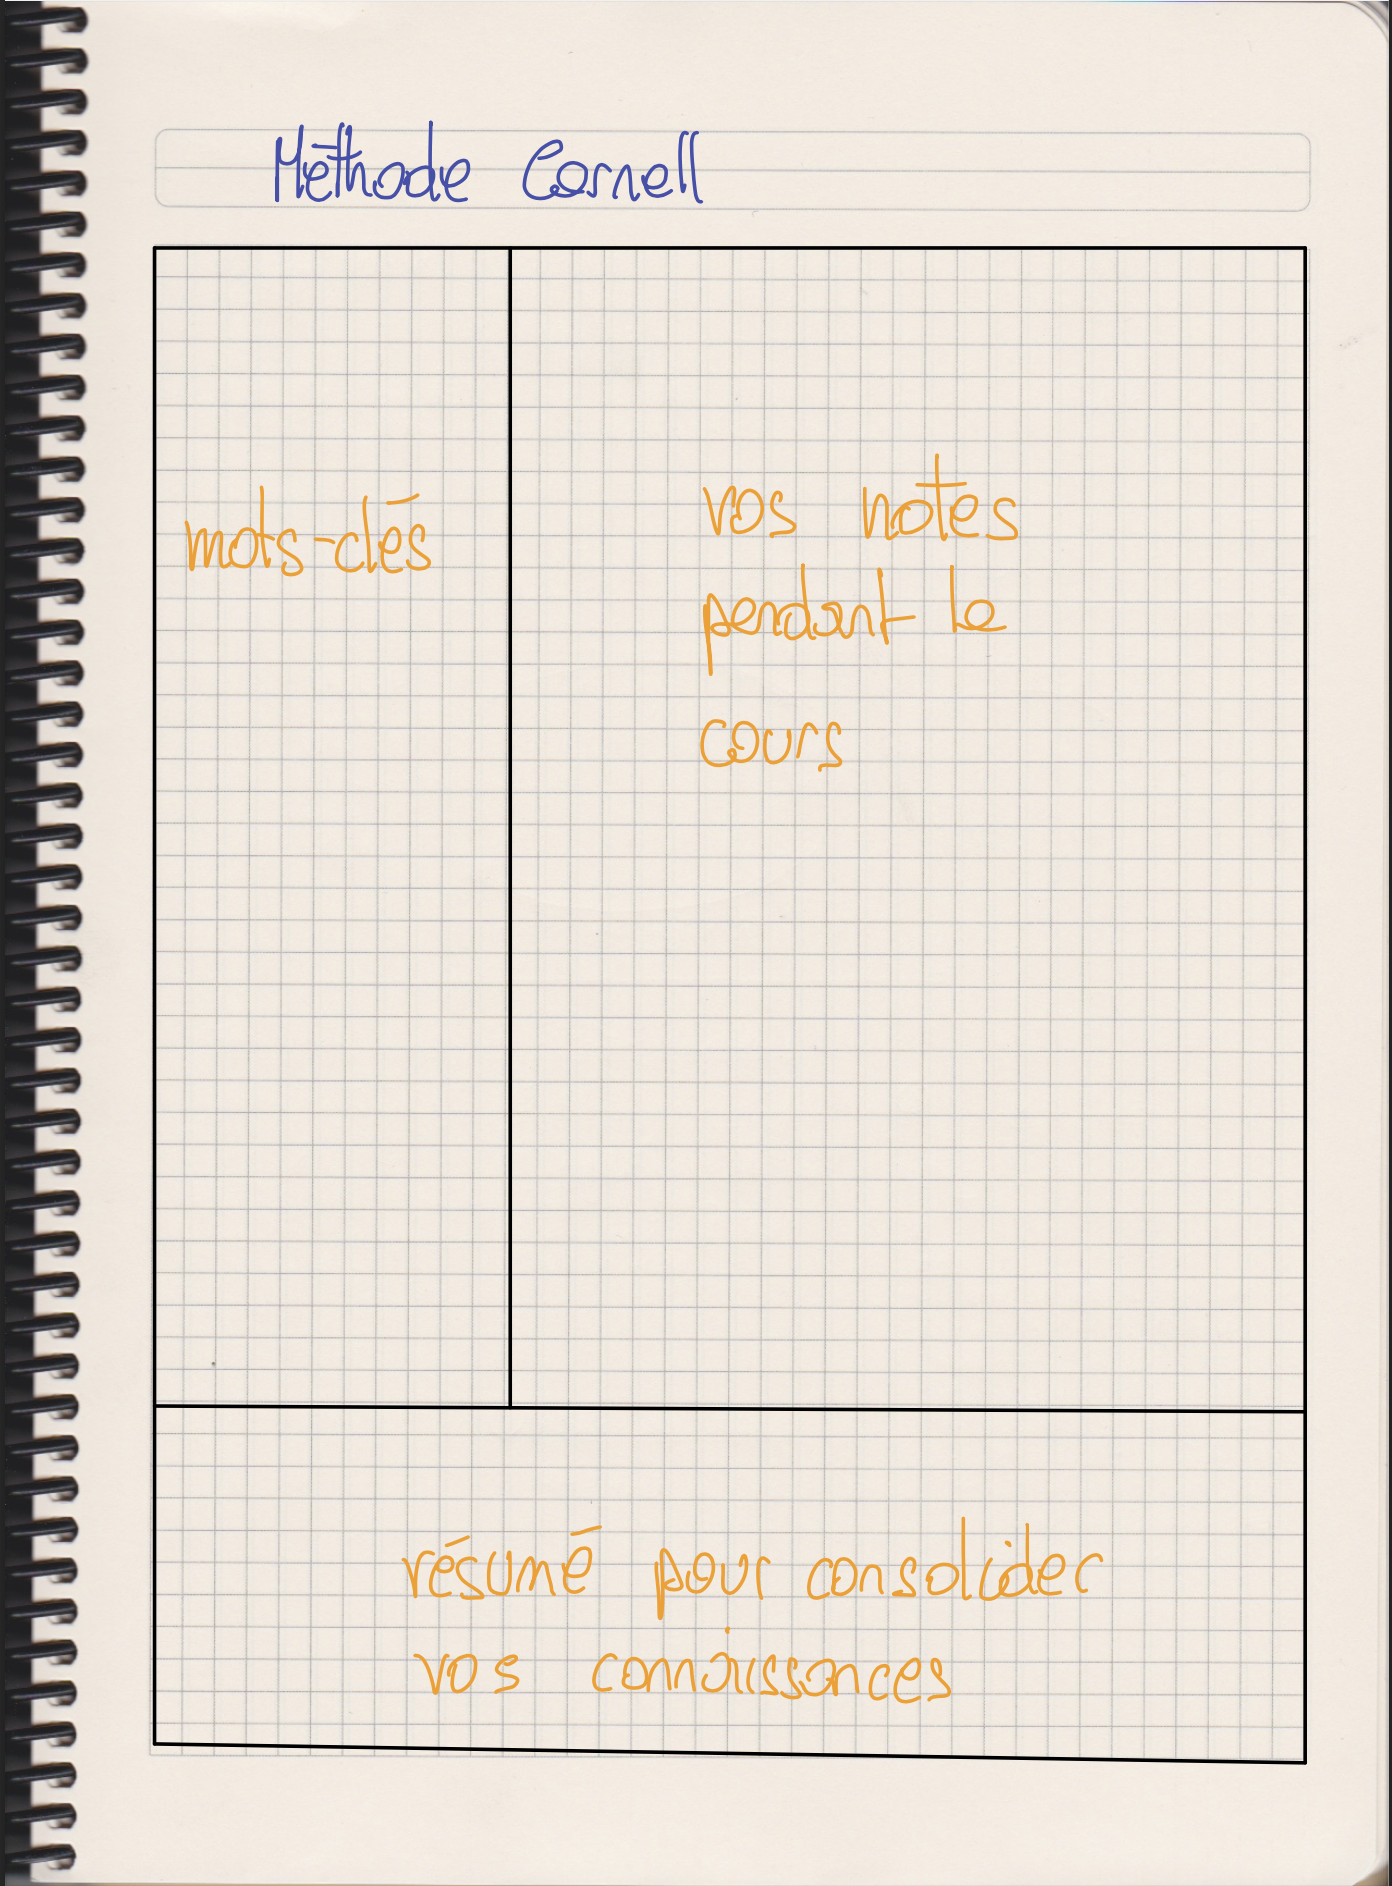 Méthode Cornell
mots-clés
vos notes
pendant le
cours
résumé pour consolider
vos connaissances